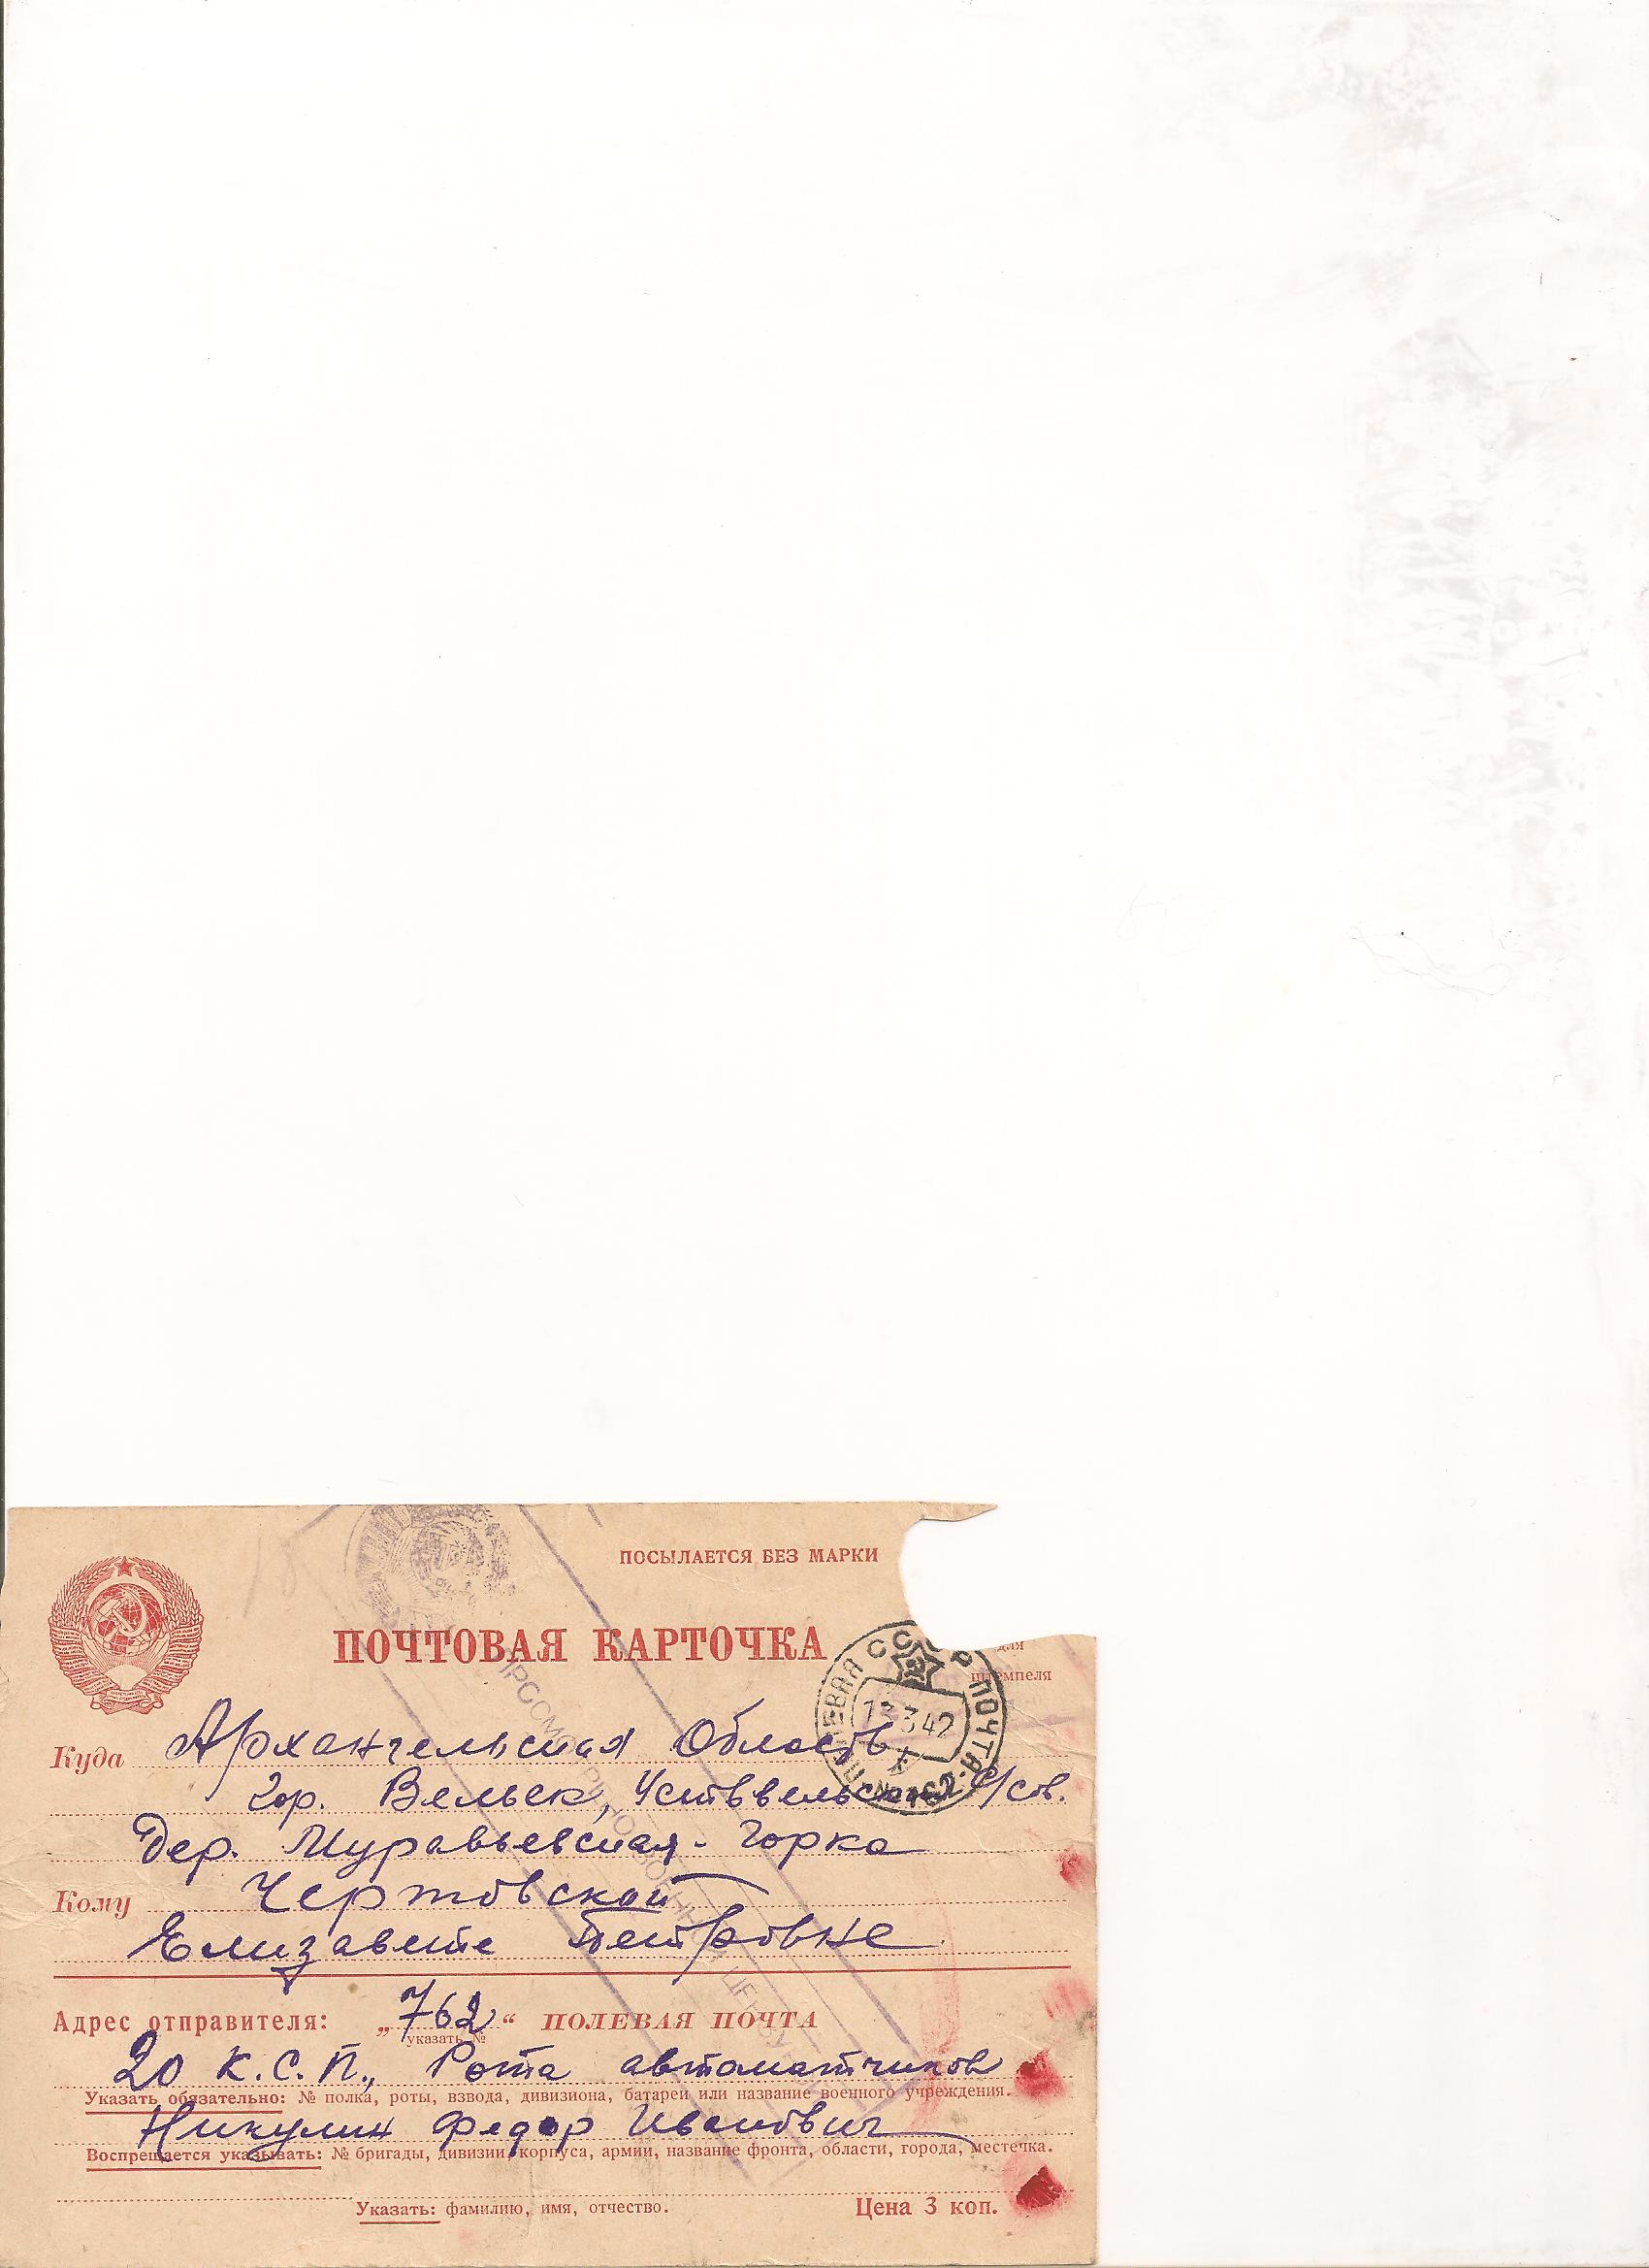 ПОСЫЛАЕТСЯ БЕЗ МАРКИ
ПОЧТОВАЯ КАРТОЧКА
для
штемпеля
ПОЛЕВАЯ ПОЧТА
СССР
13 3 42
№762
ПРОСМОТРЕНО ВОЕННОЙ ЦЕНЗУРОЙ
Куда Архангельская Область
гор. Вельск, Устьвельский С/сов.
Дер. Муравьевская-Горка
Кому Чертовской
Елизавете Петровне
Адрес отправителя: „762“ ПОЛЕВАЯ ПОЧТА
указать №
20 К.С.П., Рота автоматчиков
Указать обязательно: № полка, роты, взвода, дивизиона, батареи или название военного учреждения.
Никулин Федор Иванович
Воспрещается указывать: № бригады, дивизии, корпуса, армии, название фронта, области, города, местечка.
Указать: фамилию, имя, отчество.
Цена 3 коп.